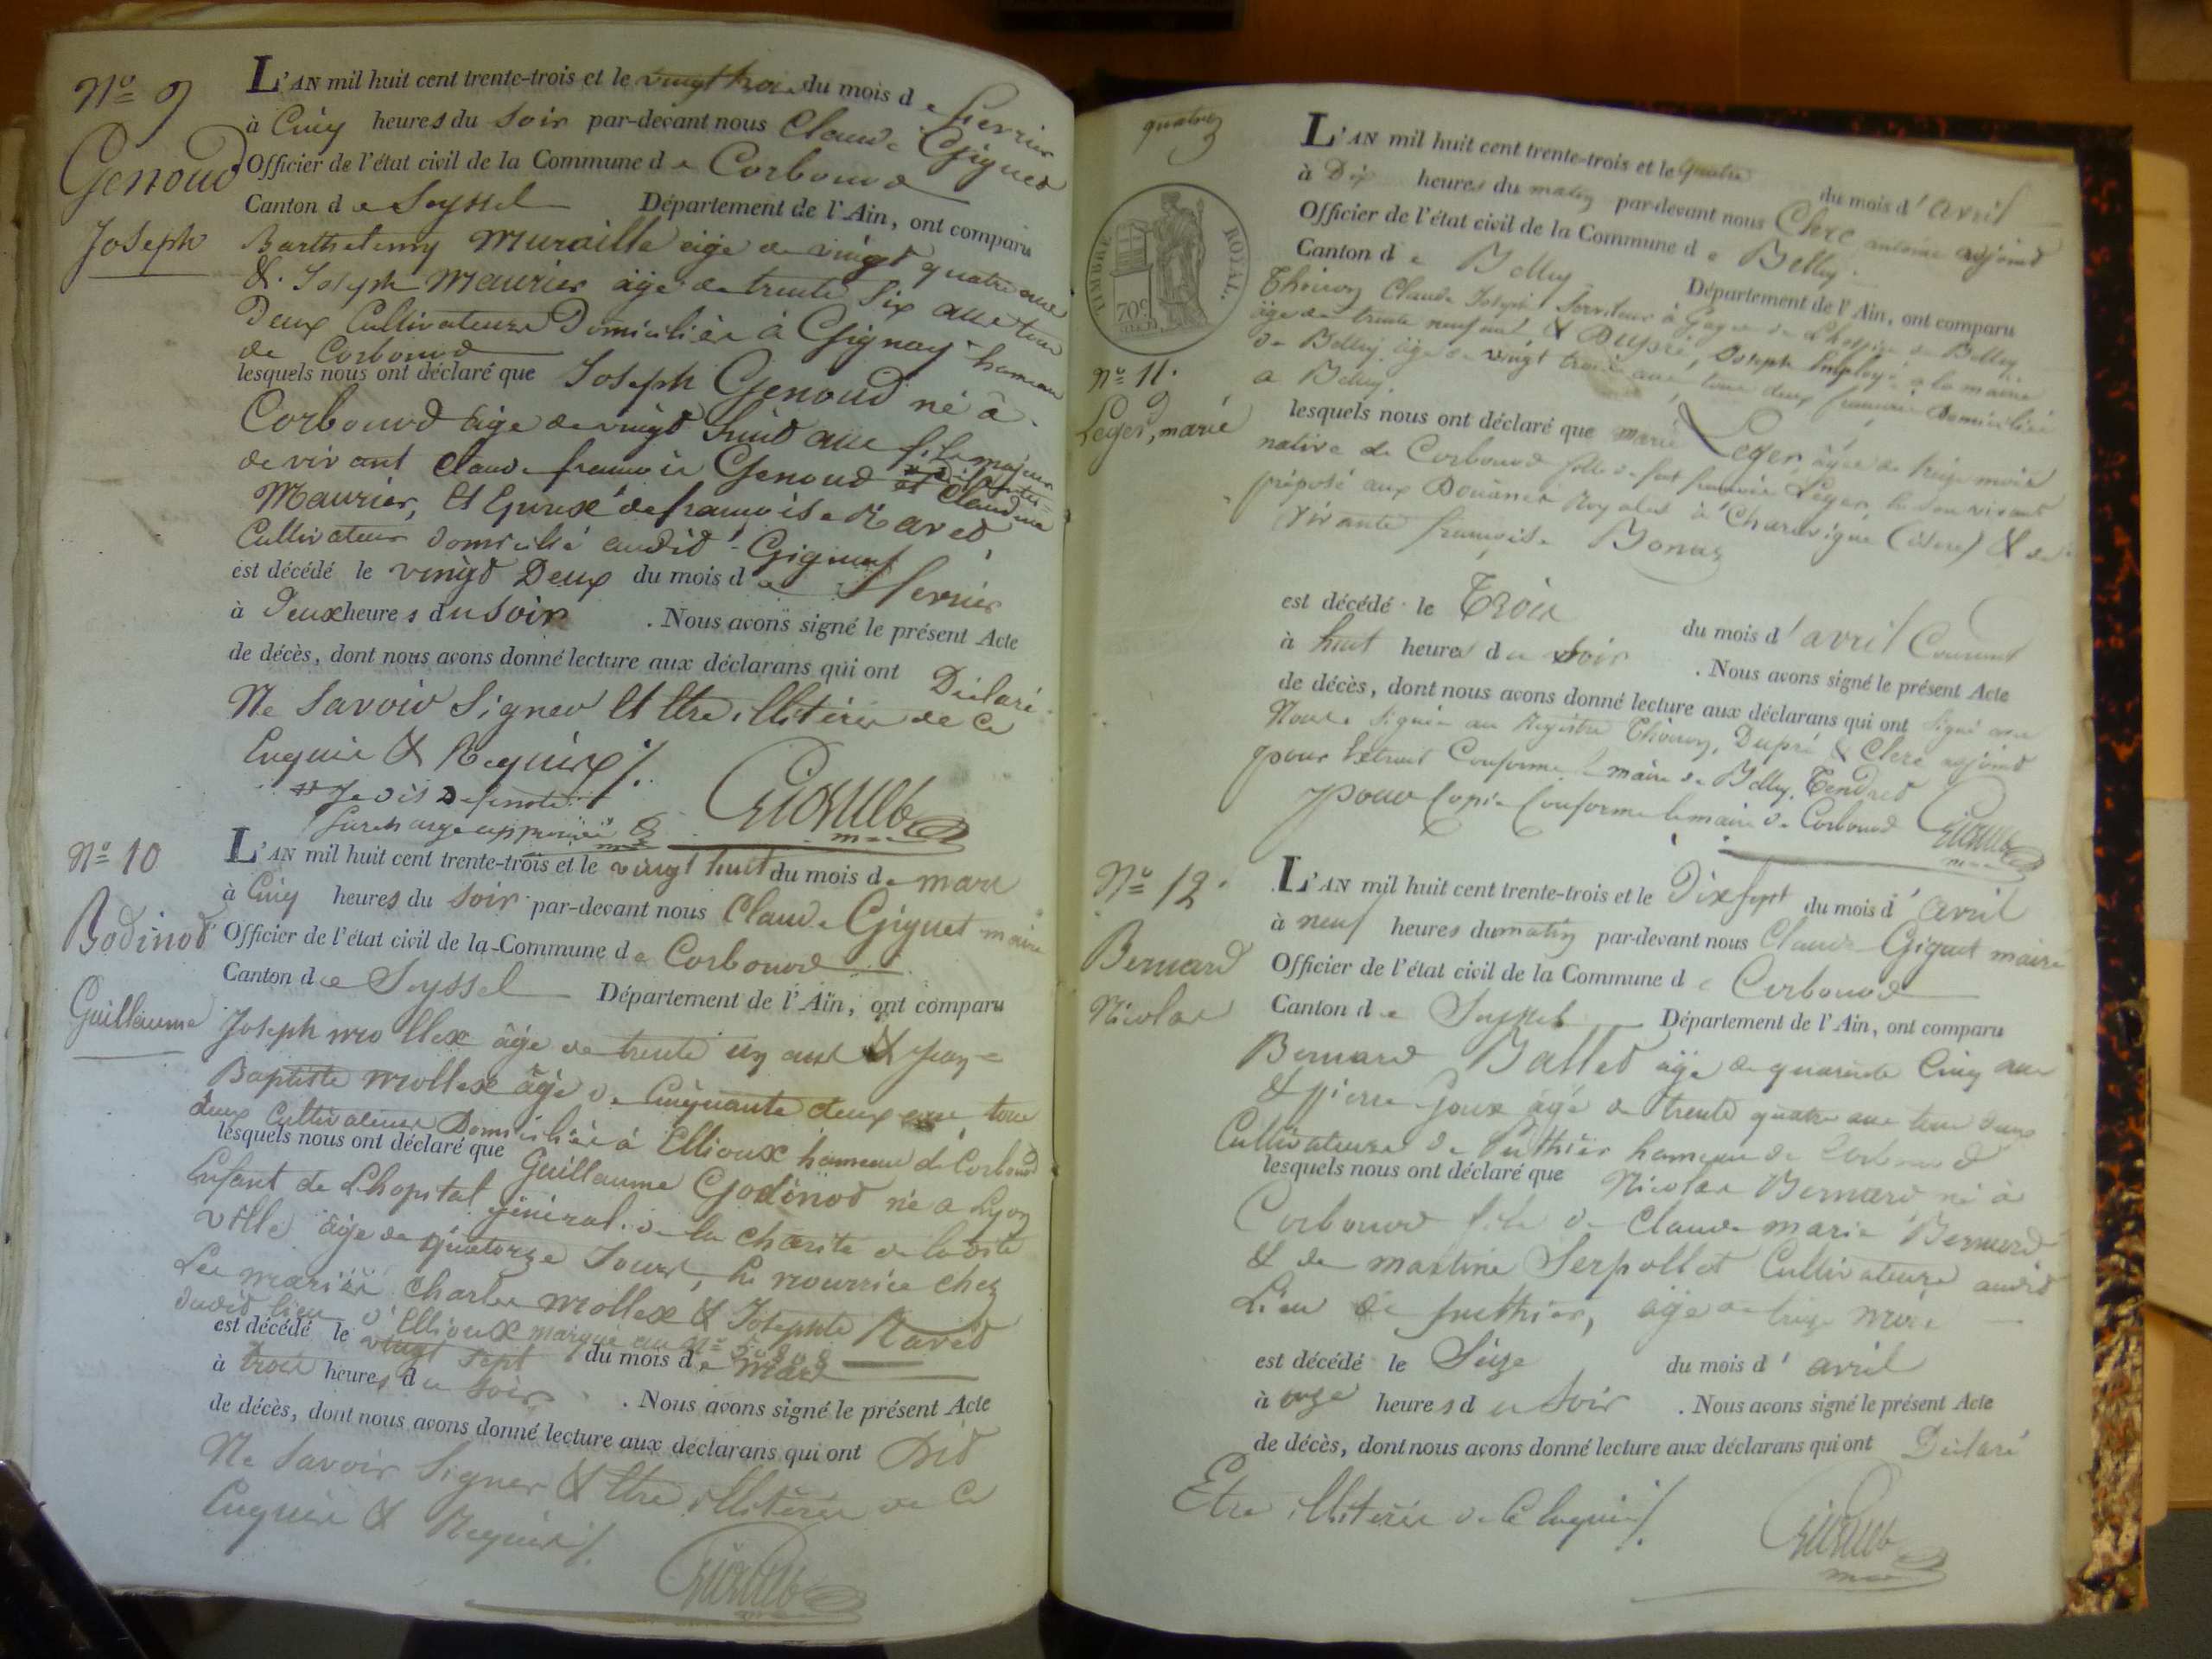 Nº 9
Genoud
Joseph
L'AN mil huit cent trente-trois et le vingt trois du mois de fevrier
à Cinq heures du Soir par-devant nous Claude Giguet
Officier de l'état civil de la Commune de Corbonod
Canton de Seyssel Département de l'Ain, ont comparu
Barthelemy Muraille âgé de vingt quatre ans
& Joseph Maurier âgé de trente six ans tous
Deux Cultivateurs Domiciliés à Gignay hameau
de Corbonod
lesquels nous ont déclaré que Joseph Genoud né à
Corbonod âgé de vingt huit ans fils majeur
de vivant Claude françois Genoud et Claudine
Maurier, Et Epoux de françoise Ravet
Cultivateur domicilié audit Gignay
est décédé le vingt Deux du mois de fevrier
à Deux heures du Soir . Nous avons signé le présent Acte
de décès, dont nous avons donné lecture aux déclarans qui ont Déclaré
Ne Savoir Signer Et Etre illitérés de Ce
Enquis & Requis /.
Surcharge approuvée
Giguet
Nº 10
Godinot
Guillaume
L'AN mil huit cent trente-trois et le vingt huit du mois de mars
à Cinq heures du Soir par-devant nous Claude Giguet maire
Officier de l'état civil de la Commune de Corbonod
Canton de Seyssel Département de l'Ain, ont comparu
Joseph Mollex âgé de trente un ans & Jean
Baptiste Mollex âgé de Cinquante deux ans tous
deux Cultivateurs Domiciliés à Ellioux hameau de Corbonod
lesquels nous ont déclaré que Guillaume Godinot né a Lyon
Enfant de L'hopital général de la Charité de ladite
ville âgé de quatorze Jours, En nourrice chez
Les mariés Charles Mollex & Josephte Ravet
dudit lieu d'Ellioux marqué au Nº
est décédé le vingt sept du mois de mars
à trois heures du Soir . Nous avons signé le présent Acte
de décès, dont nous avons donné lecture aux déclarans qui ont Dit
Ne Savoir Signer & Etre illitérés de Ce
Enquis & Requis /.
Giguet
TIMBRE ROYAL.
70c
Nº 11.
Leger, marie
L'AN mil huit cent trente-trois et le quatre du mois d'avril
à Dix heures du matin par-devant nous Clerc antoine adjoint
Officier de l'état civil de la Commune de Belley
Canton de Belley Département de l'Ain, ont comparu
Thivon Claude Joseph Serviteur à Gages de L'hospice de Belley
âgé de trente neuf ans & Dupré, Joseph Employé a la mairie
de Belley âgé de vingt trois ans tous deux Domiciliés
a Belley.
lesquels nous ont déclaré que marie Leger, âgée de treize mois
native de Corbonod fille de feu françois Leger En son vivant
préposé aux Douanes Royales à (isere) & de
vivante françoise
est décédé le Trois du mois d'avril Courant
à huit heures du Soir . Nous avons signé le présent Acte
de décès, dont nous avons donné lecture aux déclarans qui ont Signé avec
Nous. Signés au Registre Thivon, Dupré & Clerc adjoint
pour Extrait Conforme le maire de Belley. Tendret
pour Copie Conforme le maire de Corbonod
Giguet
Nº 12.
Bernard
Nicolas
L'AN mil huit cent trente-trois et le Dix sept du mois d'avril
à neuf heures du matin par-devant nous Claude Giguet maire
Officier de l'état civil de la Commune de Corbonod
Canton de Seyssel Département de l'Ain, ont comparu
Bernard Ballet âgé de quarante Cinq ans
& pierre Joux âgé de trente quatre ans tous deux
Cultivateurs de Puthier hameau de Corbonod
lesquels nous ont déclaré que Nicolas Bernard né à
Corbonod fils de Claude marie Bernard
& de martine Serpollet Cultivateurs audit
Lieu de puthier, âgé de treize mois
est décédé le Seize du mois d'avril
à onze heures du Soir . Nous avons signé le présent Acte
de décès, dont nous avons donné lecture aux déclarans qui ont Déclaré
Etre illitérés de Ce Enquis /.
Giguet